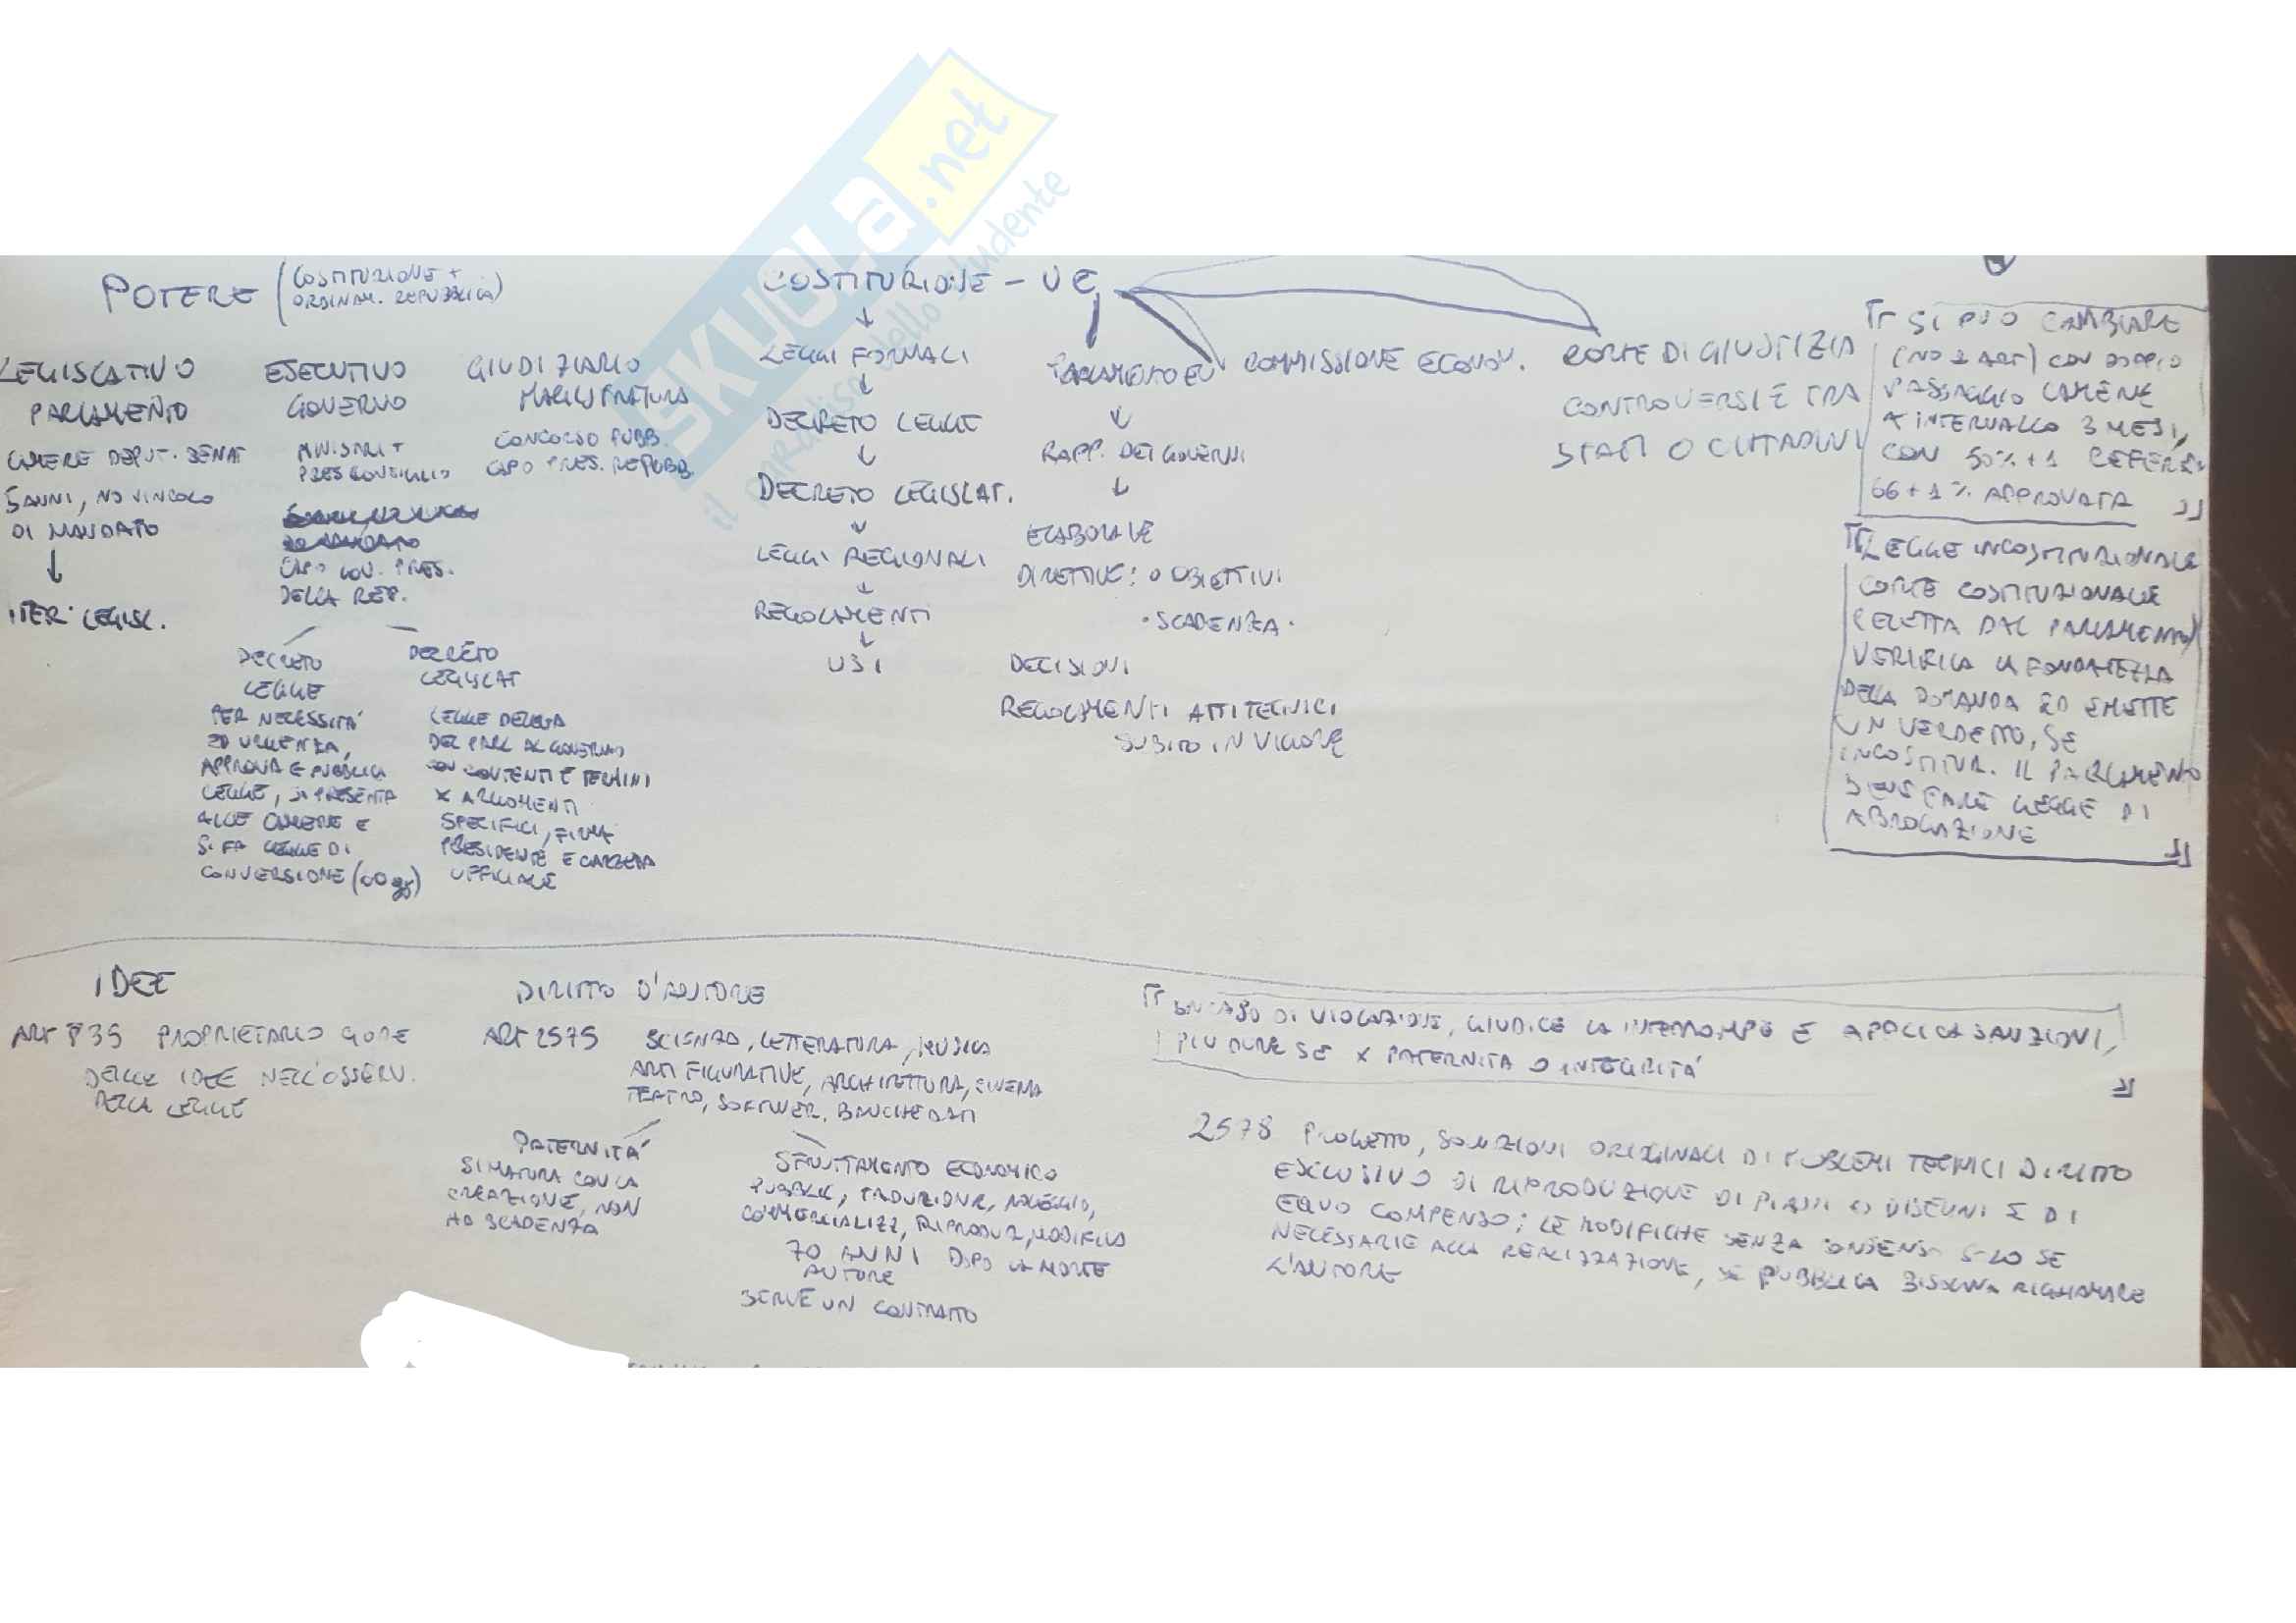 SKUOLA.net
il paradiso dello studente
POTERE (COSTITUZIONE +
ORDINAM. REPUBBLICA)
LEGISLATIVO
PARLAMENTO
CAMERE DEPUT. SENAT
5 ANNI, NO VINCOLO
DI MANDATO
↓
ITER LEGISL.
ESECUTIVO
GOVERNO
MINISTRI +
PRES CONSIGLIO
CAPO GOV. PRES.
DELLA REP.
DECRETO
LEGGE
PER NECESSITÀ
ED URGENZA,
APPROVA E PUBBLICA
LEGGE, SI PRESENTA
ALLE CAMERE E
SI FA LEGGE DI
CONVERSIONE (60 gg)
DECRETO
LEGISLAT
LEGGE DELEGA
DEL PARL AL GOVERNO
CON CONTENTI E TERMINI
X ARGOMENTI
SPECIFICI, FIRMA
PRESIDENTE E GAZZETTA
UFFICIALE
GIUDIZIARIO
MAGISTRATURA
CONCORSO PUBB.
CAPO PRES. REPUBB.
COSTITUZIONE - UE
↓
LEGGI FORMALI
↓
DECRETO LEGGE
↓
DECRETO LEGISLAT.
↓
LEGGI REGIONALI
↓
REGOLAMENTI
↓
USI
PARLAMENTO EU
↓
RAPP. DEI GOVERNI
↓
ELABORA
DIRETTIVE: O OBIETTIVI
· SCADENZA ·
DECISIONI
REGOLAMENTI ATTI TECNICI
SUBITO IN VIGORE
COMMISSIONE ECONOM.
CORTE DI GIUSTIZIA
CONTROVERSIE TRA
STATI O CITTADINI
SI PUÒ CAMBIARE
(NO 1 ART) CON DOPPIO
PASSAGGIO CAMERE
A INTERVALLO 3 MESI,
CON 50% + 1 REFER
66 + 1 % APPROVATA
LEGGE INCOSTITUZIONALE
CORTE COSTITUZIONALE
(ELETTA DAL PARLAMENTO)
VERIFICA LA FONDATEZZA
DELLA DOMANDA ED EMETTE
UN VERDETTO, SE
INCOSTITUZ. IL PARLAMENTO
DEVE FARE LEGGE DI
ABROGAZIONE
IDEE
ART 835 PROPRIETARIO GODE
DELLE IDEE NELL'OSSERV.
DELLA LEGGE
DIRITTO D'AUTORE
ART 2575 SCIENZA, LETTERATURA, MUSICA
ARTI FIGURATIVE, ARCHITETTURA, CINEMA
TEATRO, SOFTWER, BANCHE DATI
PATERNITÀ
SI MATURA CON LA
CREAZIONE, NON
HA SCADENZA
SFRUTTAMENTO ECONOMICO
PUBBLIC, TRADUZIONE, NOLEGGIO,
COMMERCIALIZZ, RIPRODUZ, MODIFICA
70 ANNI DOPO LA MORTE
AUTORE
SERVE UN CONTRATTO
IN CASO DI VIOLAZIONE, GIUDICE LA INTERROMPE E APPLICA SANZIONI,
PIÙ DURE SE X PATERNITA O INTEGRITÀ
2578 PROGETTO, SOLUZIONI ORIGINALI DI PROBLEMI TECNICI DIRITTO
ESCLUSIVO DI RIPRODUZIONE DI PIANI O DISEGNI E DI
EQUO COMPENSO; LE MODIFICHE SENZA CONSENSO SOLO SE
NECESSARIE ALLA REALIZZAZIONE, SE PUBBLICA BISOGNA RICHIAMARE
L'AUTORE